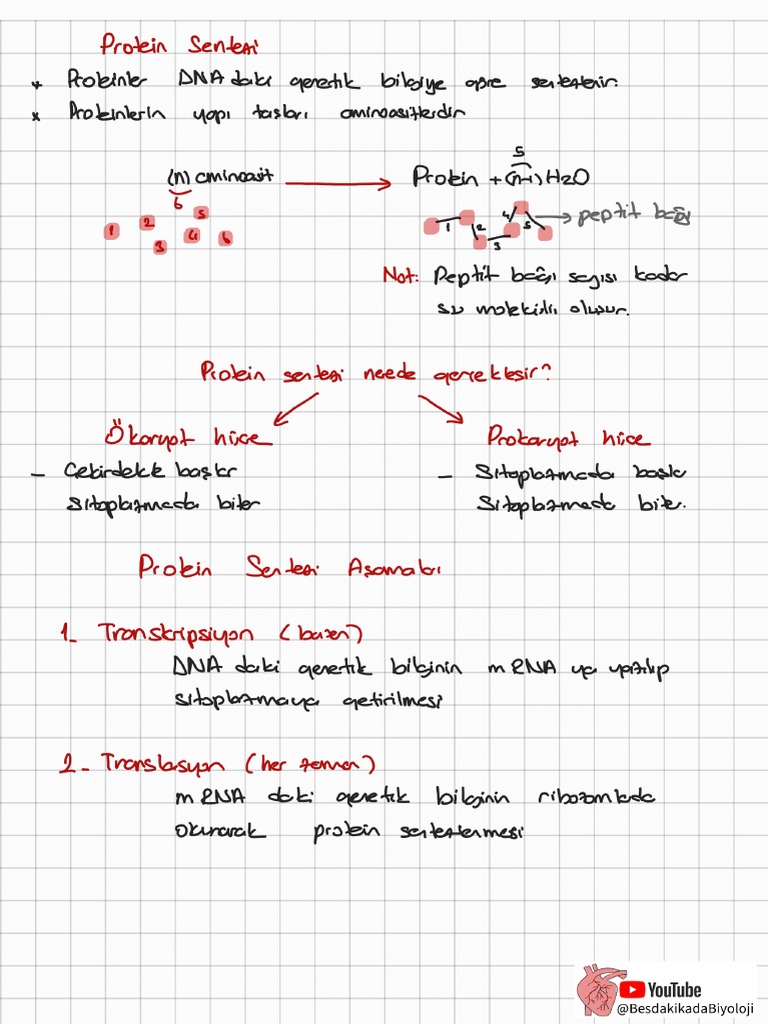 Protein Sentezi
* Proteinler DNA daki genetik bilgiye göre sentezlenir.
* Proteinlerin yapı taşları aminoasitlerdir
5
(n) aminoasit → Protein + (n-1) H2O
6
1 2 3 4 5 6
1 2 3 4 5 → peptit bağı
Not: Peptit bağı sayısı kadar
su molekülü oluşur.
Protein sentezi nerede gerçekleşir?
Ökaryot hücre
- Çekirdekte başlar
Sitoplazmada biter
Prokaryot hücre
- Sitoplazmada başlar
Sitoplazmada biter.
Protein Sentezi Aşamaları
1- Transkripsiyon (bazen)
DNA daki genetik bilginin mRNA ya yazılıp
sitoplazmaya getirilmesi
2- Translasyon (her zaman)
mRNA daki genetik bilginin ribozomlarda
okunarak protein sentezlenmesi
YouTube
@BesdakikadaBiyoloji